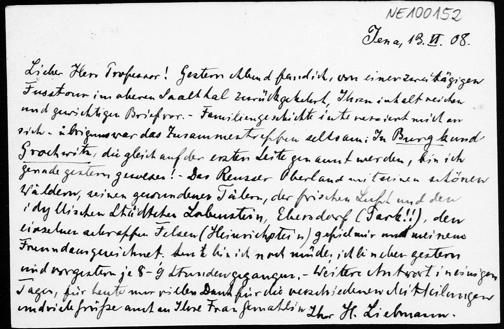 NE100152
Jena, 13. VI. 08.
Lieber Herr Professor! Gestern Abend fand ich, von einer zweitägigen
Fusstour im oberen Saalthal zurückgekehrt, Ihren inhaltreichen
und gewichtigen Brief vor. - Familiengeschichte interessiert mich an
sich - übrigens war das Zusammentreffen seltsam: In Burgk und
Grochwitz, die gleich auf der ersten Seite genannt werden, bin ich
gerade gestern gewesen! - Das Reusser Oberland mit seinen schönen
Wäldern, seinen gewundenen Tälern, der frischen Luft und den
idyllischen Städtchen Lobenstein, Ebersdorf (Park!!), den
einzelnen schroffen Felsen (Heinrichstein) gefiel mir und meinem
Freund ausgezeichnet. Heut bin ich noch müde; ich bin eben gestern
und vorgestern je 8-9 Stunden gegangen. - Weitere Antwort in einigen
Tagen, für heute nur vielen Dank für die verschiedenen Mitteilungen
und viele Grüße auch an Ihre Frau Gemahlin Ihr H. Liebmann.